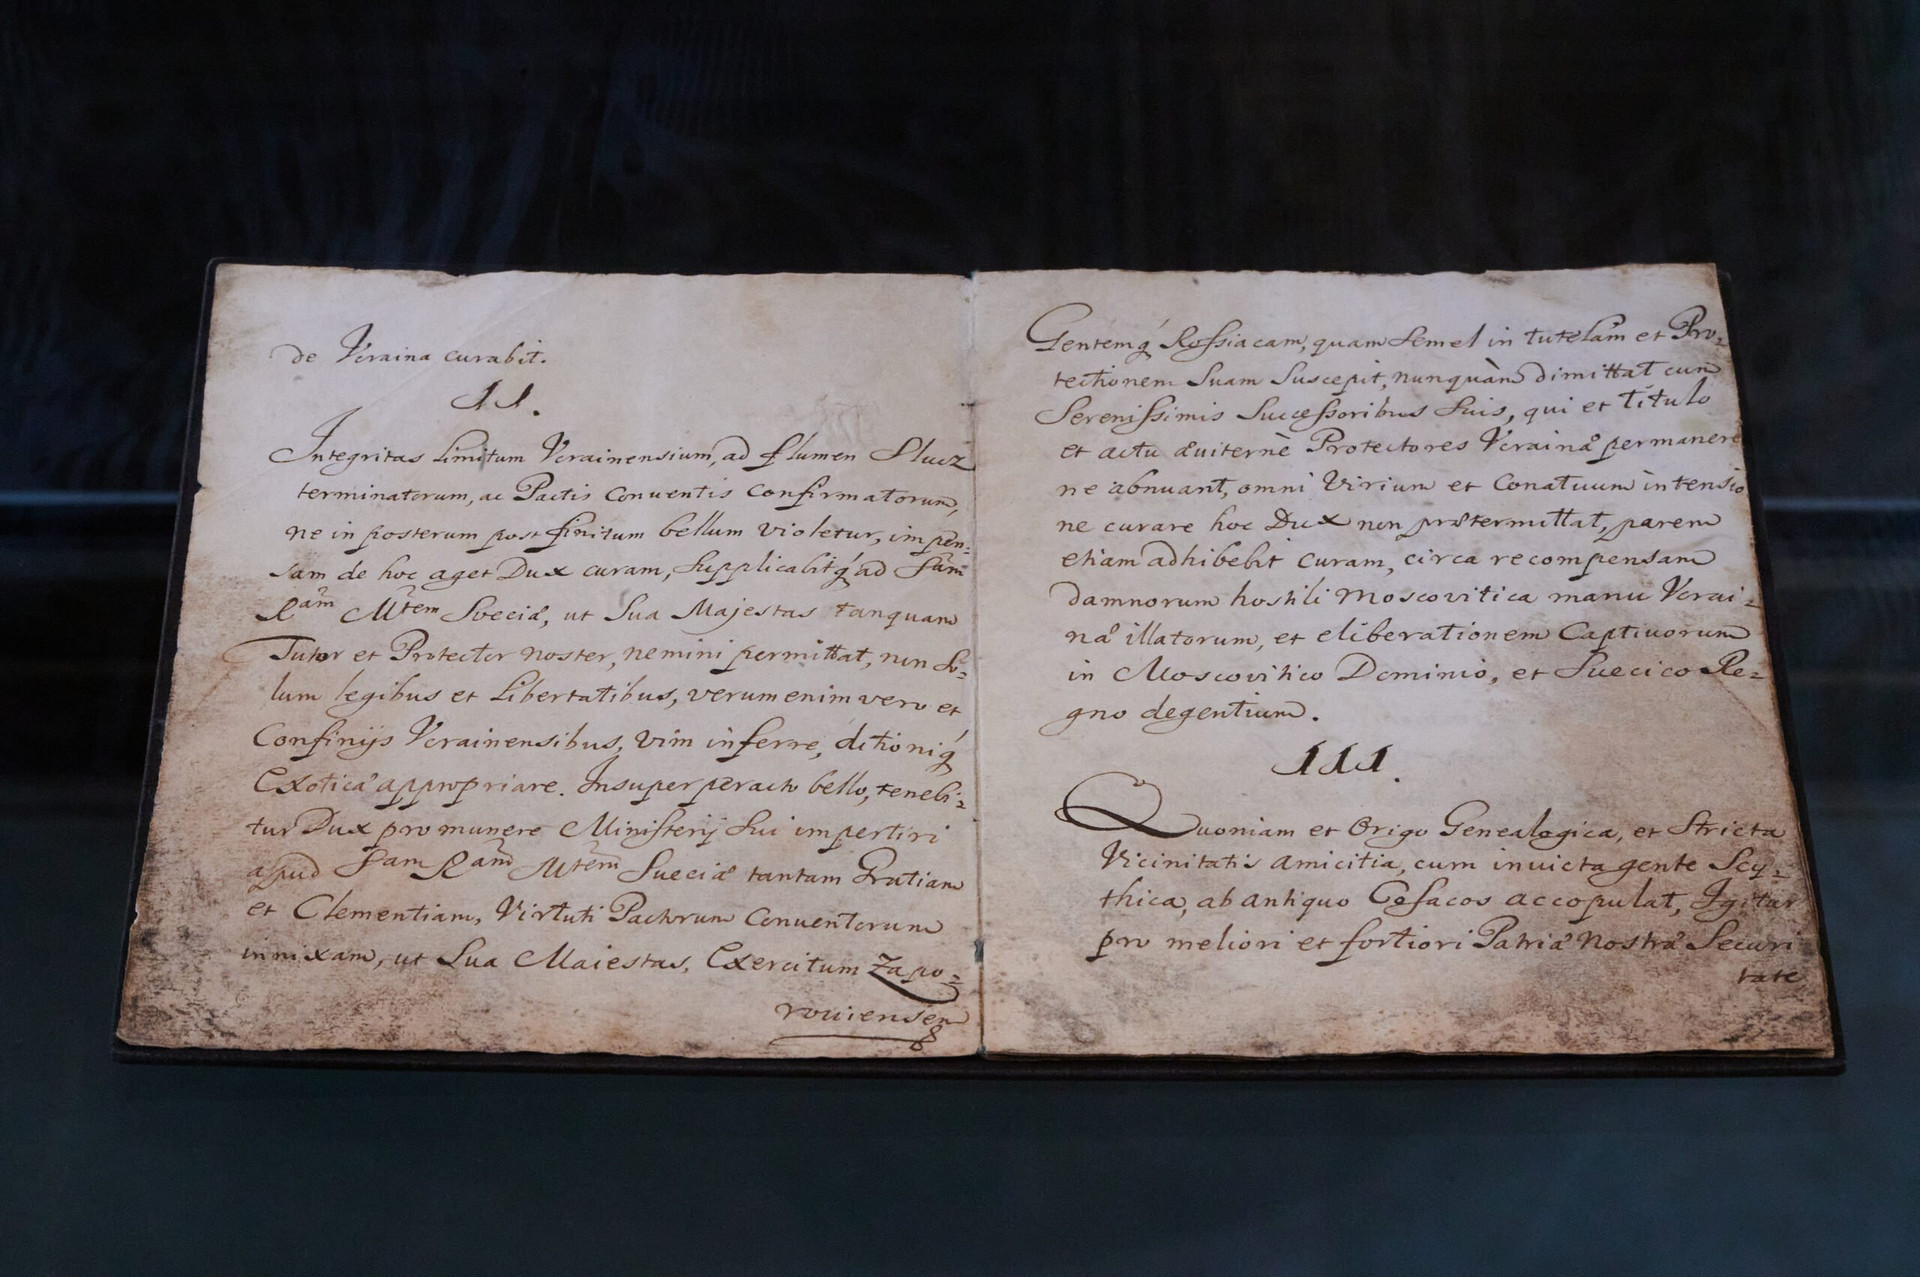 de Vcraina curabit.
II.
Integritas Limitum Vcrainensium, ad flumen Slucz
terminatorum, ac Pactis Conventis confirmatorum,
ne in posterum post finitum bellum violetur, impen=
sam de hoc aget Dux curam, supplicabitq́ ad Sam
Ram Mtem Sveciæ, ut Sua Majestas tanquam
Tutor et Protector noster, nemini permittat, non so=
lum legibus et Libertatibus, verum enim vero et
Confinijs Vcrainensibus, vim inferre, ditioniq́
Exoticæ appropriare. Insuper peracto bello, tenebi=
tur Dux pro munere Ministerij sui impertiri
apud Sam Ram Mtem Sueciæ tantam Gratiam
et Clementiam, Virtuti Pactorum Conventorum
innixam, ut Sua Maiestas, Exercitum Zapo=
roviensem
Gentemq́ Rossiacam, quam semel in tutelam et Pro=
tectionem Suam Suscepit, nunquàm dimittat cum
Serenissimis Successoribus Suis, qui et titulo
et actu æuiternè Protectores Vcrainæ permanere
ne abnuant, omni Virium et Conatuum intensio
ne curare hoc Dux non prætermittat, parem
etiam adhibebit curam, circa recompensam
damnorum hostili Moscovitica manu Vcrai=
næ illatorum, et eliberationem Captiuorum
in Moscovitico Dominio, et Suecico Re=
gno degentium.
III.
Quoniam et Origo Genealogica, et Stricta
Vicinitatis amicitia, cum invicta gente Scy=
thica, ab antiquo Cosacos accopulat, Igitur
pro meliori et fortiori Patriæ Nostræ Securi
tate